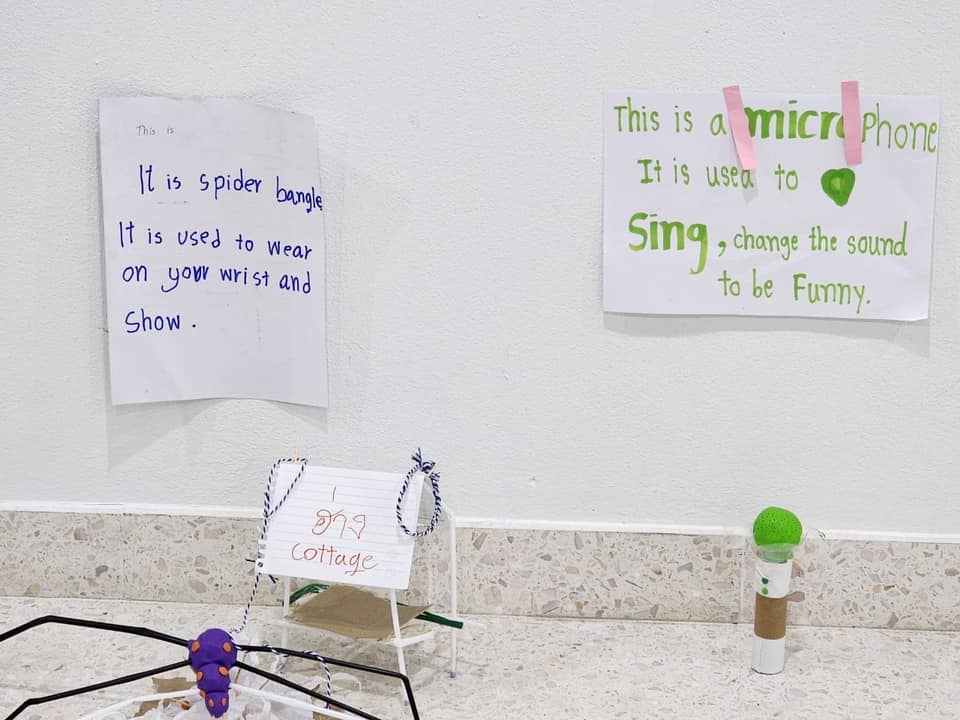 This is
It is spider bangle
It is used to wear
on your wrist and
show.
This is a microphone
It is used to
Sing, change the sound
to be Funny.
ฮ่าง
cottage